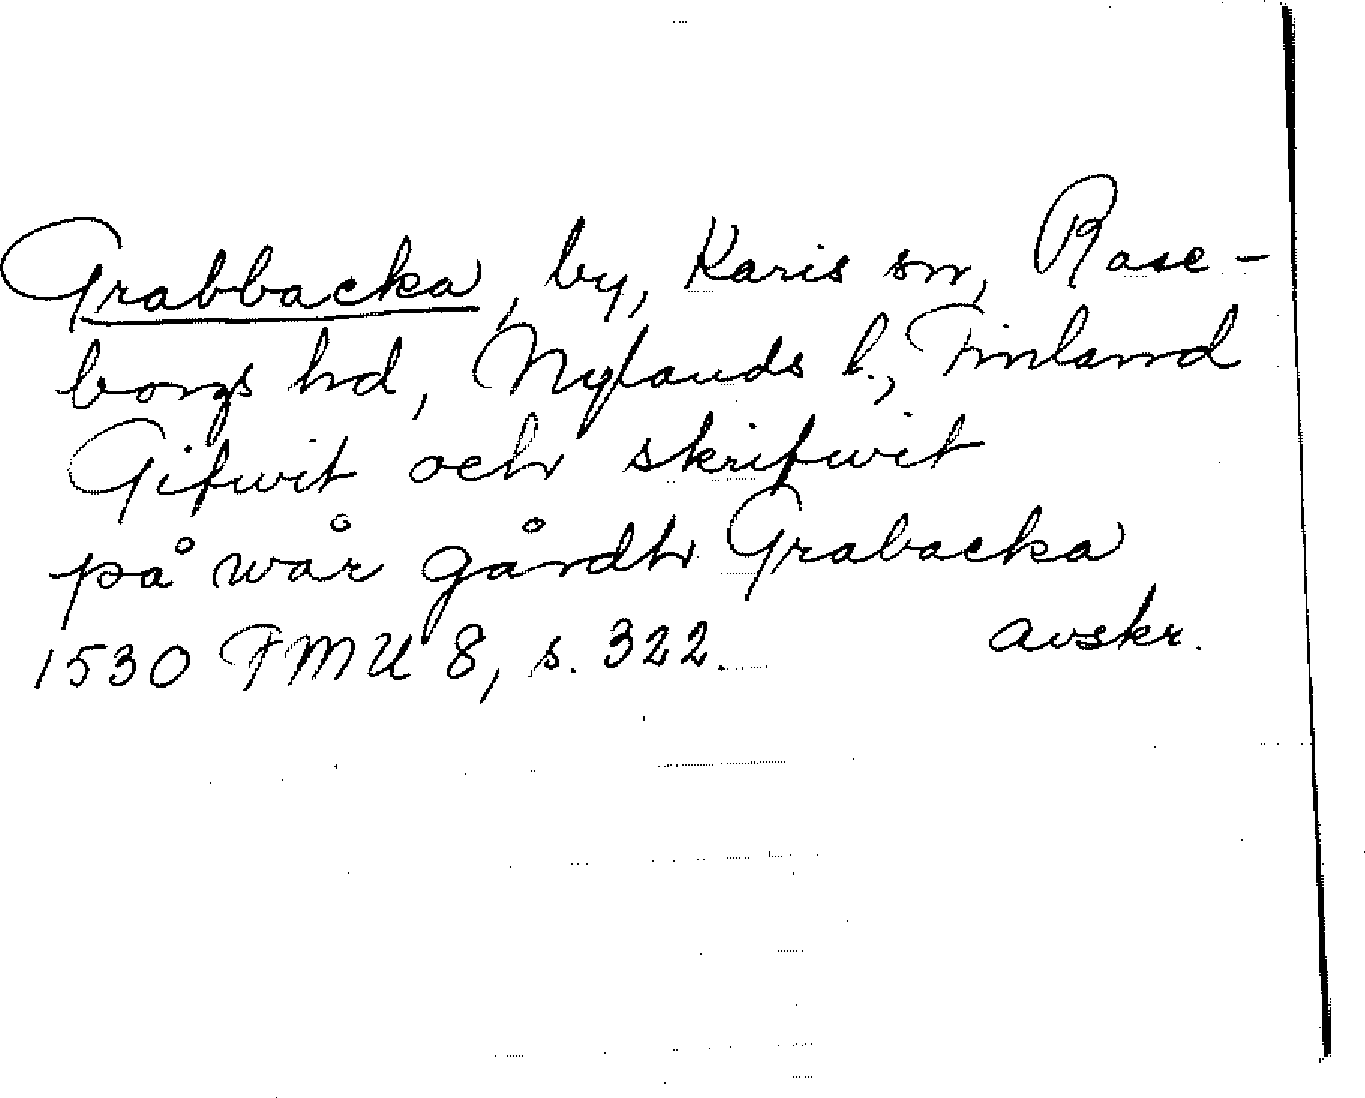 Grabbacka, by, Karis sn, Rase-
borgs hd, Nylands l., Finland
Gifwit och skrifwit
på wår gårdh Grabacka
1530 FMU 8, s. 322. avskr.